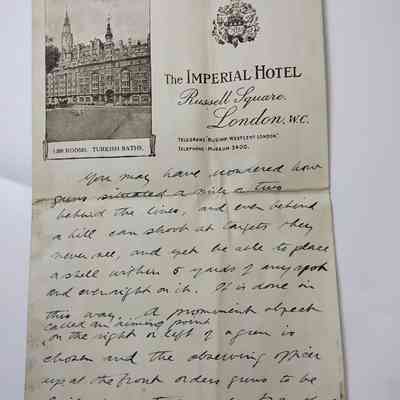 The IMPERIAL HOTEL
Russell Square.
London, W.C.
TELEGRAMS,
TELEPHONE - MUSEUM 3400.
ROOMS. TURKISH BATHS.
You may have wondered how
guns situated a mile or two
behind the lines, and even behind
a hill can shoot at targets they
never see, and yet be able to place
a shell within 5 yards of any spot
and even right on it. It is done in
this way. A prominent object
called an aiming point
on the right or left of a gun is
chosen and the observing officer
up at the front orders guns to be